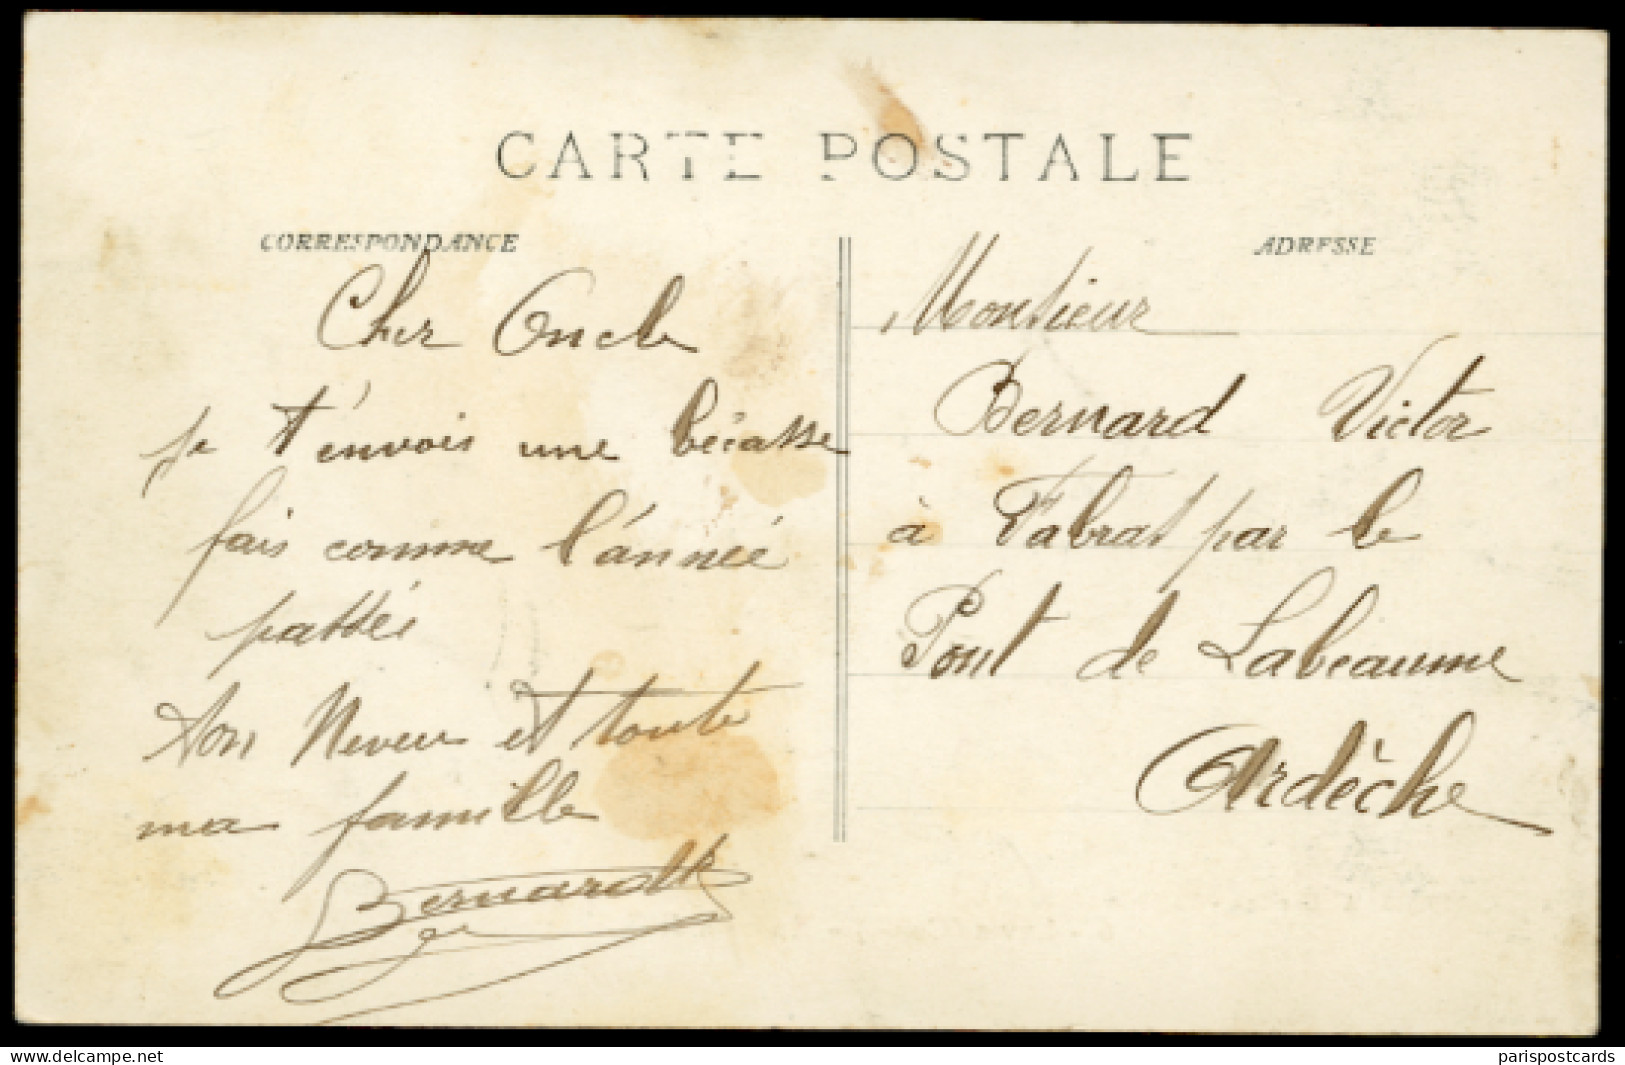 CARTE POSTALE
CORRESPONDANCE
ADRESSE
Cher Oncle
je t'envois une bécasse
fais comme l'année
passée
ton Neveu et toute
ma famille
Bernard
Monsieur
Bernard Victor
à Fabras par le
Pont de Labeaume
Ardèche
www.delcampe.net
parispostcards